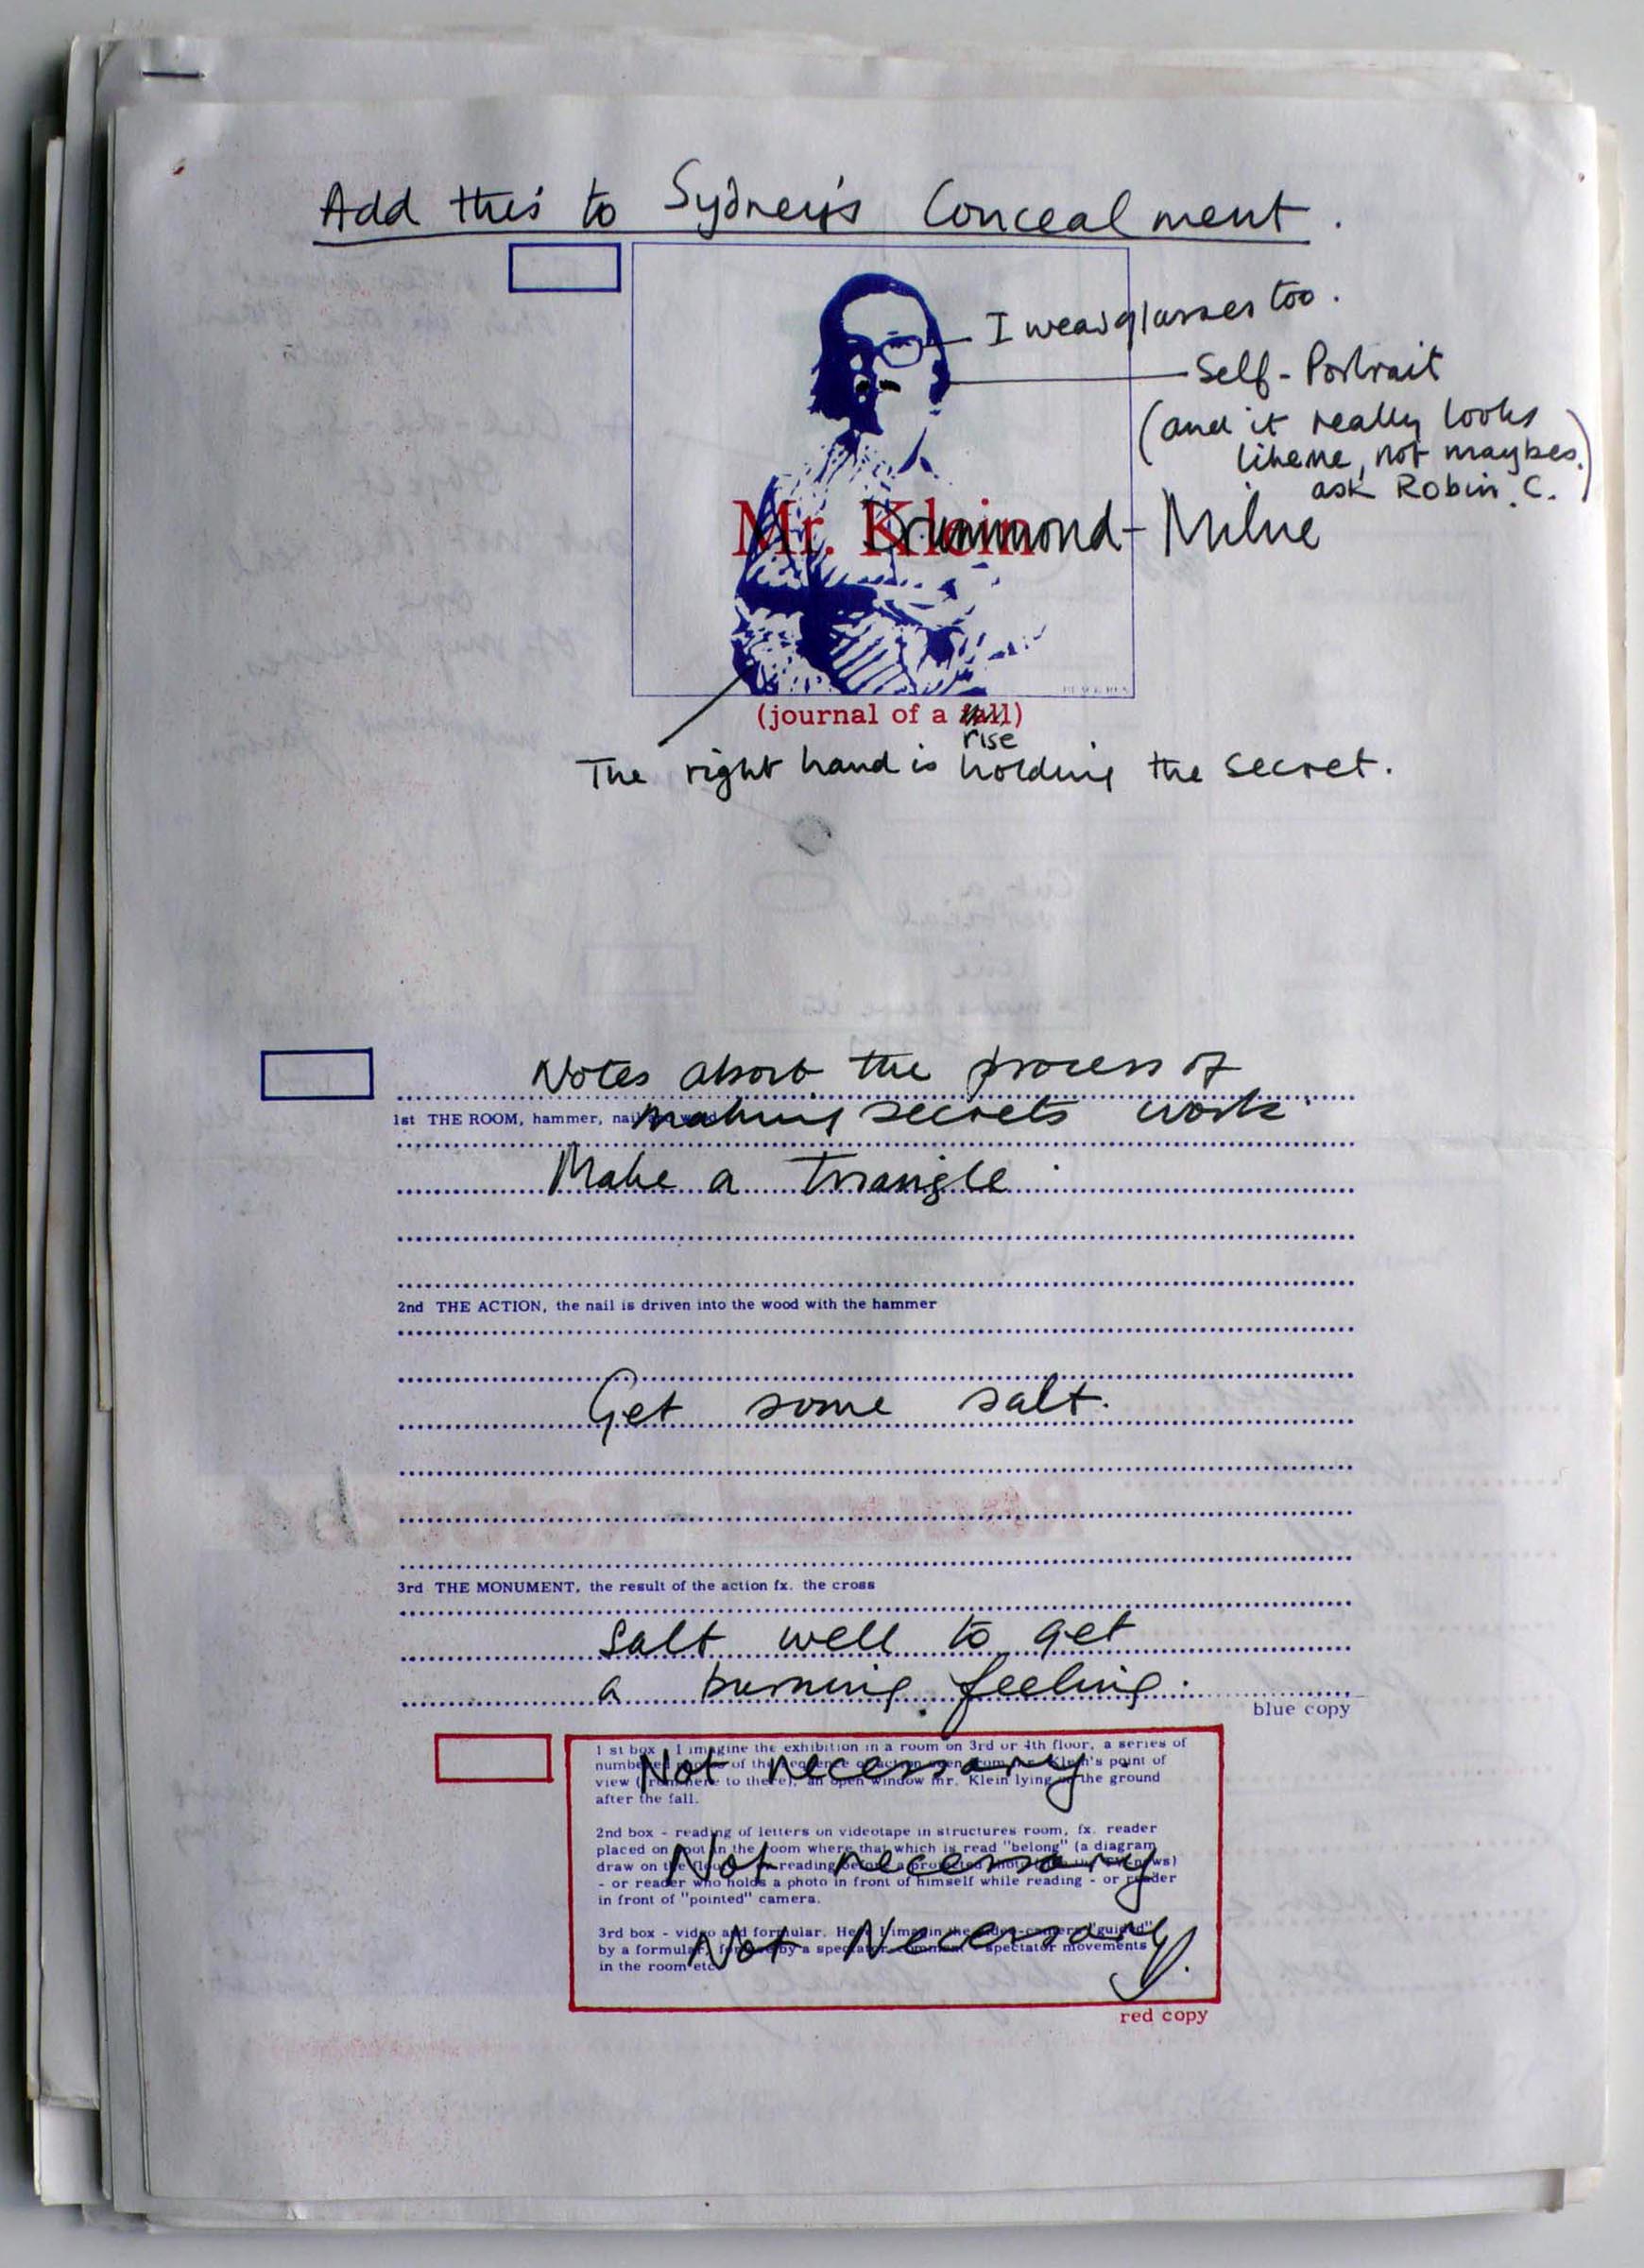 Add this to Sydney's Concealment.
I wear glasses too.
Self-Portrait
(and it really looks
like me, not maybes.
ask Robin C.)
Mr. Klein
Drummond-Milne
(journal of a fall)
rise
The right hand is holding the secret.
Notes about the process of
1st THE ROOM, hammer, nail
making secrets work.
Make a triangle.
2nd THE ACTION, the nail is driven into the wood with the hammer
Get some salt.
3rd THE MONUMENT, the result of the action fx. the cross
Salt well to get
a burning feeling.
blue copy
1 st box - I imagine the exhibition in a room on 3rd or 4th floor, a series of
Not necessary.
numbered of the sequence of action seen from mr. Klein's point of
view (from here to there), an open window mr. Klein lying on the ground
after the fall.
2nd box - reading of letters on videotape in structures room, fx. reader
placed on spot in the room where that which is read "belong" (a diagram
Not necessary
draw on the floor) reading before a projected photo TV-news)
- or reader who holds a photo in front of himself while reading - or reader
in front of "pointed" camera.
3rd box - video and formular. Here I imagin the video-camera "guided"
Not Necessary.
by a formular, by a spectator comment spectator movements
in the room etc
red copy